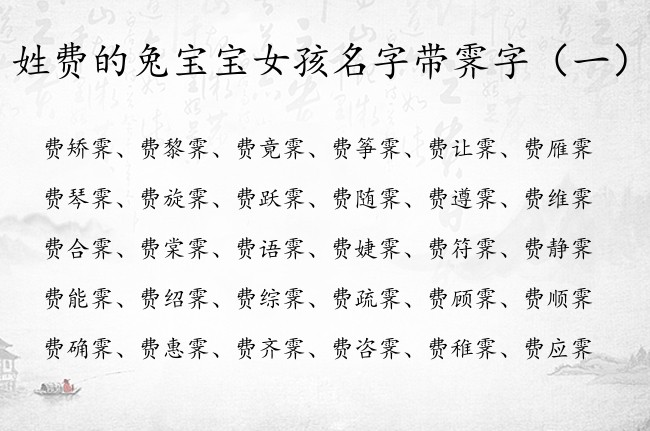 姓费的兔宝宝女孩名字带霁字（一）
费矫霁、费黎霁、费竟霁、费筝霁、费让霁、费雁霁
费琴霁、费旋霁、费跃霁、费随霁、费遵霁、费维霁
费合霁、费棠霁、费语霁、费婕霁、费符霁、费静霁
费能霁、费绍霁、费综霁、费疏霁、费顾霁、费顺霁
费确霁、费惠霁、费齐霁、费咨霁、费稚霁、费应霁